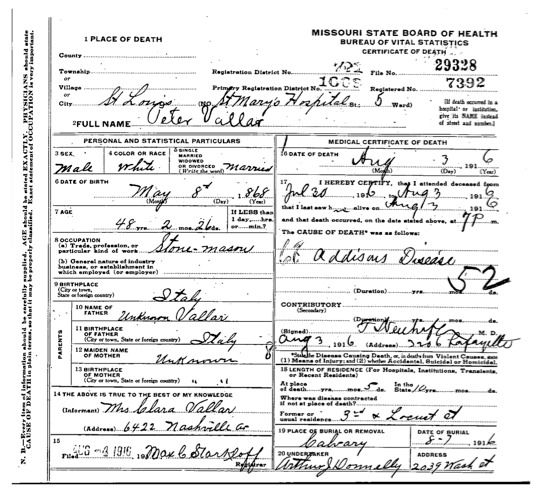 MISSOURI STATE BOARD OF HEALTH
BUREAU OF VITAL STATISTICS
CERTIFICATE OF DEATH
1 PLACE OF DEATH
County
Township
or
Village
or
City St Louis (No. St Mary's Hospital St; 5 Ward)
Registration District No. File No. 29328
Primary Registration District No. 1003 Registered No. 7392
[If death occurred in a hospital or institution, give its NAME instead of street and number.]
2 FULL NAME Peter Vallar
PERSONAL AND STATISTICAL PARTICULARS
3 SEX Male
4 COLOR OR RACE White
5 SINGLE MARRIED WIDOWED OR DIVORCED (Write the word) Married
6 DATE OF BIRTH May 8th 1868
(Month) (Day) (Year)
7 AGE 48 yrs. 2 mos. 26 ds.
If LESS than 1 day,...hrs. or...min.?
8 OCCUPATION
(a) Trade, profession, or particular kind of work Stone-mason
(b) General nature of industry business, or establishment in which employed (or employer)
9 BIRTHPLACE
(City or town, State or foreign country) Italy
PARENTS
10 NAME OF FATHER Unknown Vallar
11 BIRTHPLACE OF FATHER
(City or town, State or foreign country) Italy
12 MAIDEN NAME OF MOTHER Unknown
13 BIRTHPLACE OF MOTHER
(City or town, State or foreign country) " "
14 THE ABOVE IS TRUE TO THE BEST OF MY KNOWLEDGE
(Informant) Mrs Clara Vallar
(Address) 6422 Nashville av
15
Filed AUG -4 1916, 191 Max C Starkloff
Registrar
MEDICAL CERTIFICATE OF DEATH
16 DATE OF DEATH Aug 3 1916
(Month) (Day) (Year)
17 I HEREBY CERTIFY, that I attended deceased from
Jul 30 1916, to Aug 3 1916
that I last saw h alive on Aug 3 1916
and that death occurred, on the date stated above, at 7 P m.
The CAUSE OF DEATH* was as follows:
Addisons Disease
52
(Duration) yrs. mos. ds.
CONTRIBUTORY
(Secondary)
(Duration) yrs. mos. ds.
(Signed) F Neuhoff M. D.
Aug 3, 1916 (Address) 2206 Lafayette
*State the Disease Causing Death, or, in death from Violent Causes, state (1) Means of Injury; and (2) whether Accidental, Suicidal or Homicidal.
18 LENGTH OF RESIDENCE (For Hospitals, Institutions, Transients, or Recent Residents)
At place of death yrs. mos. 5 ds. In the State 10 yrs. mos. ds.
Where was disease contracted if not at place of death?
Former or usual residence 3rd & Locust st
19 PLACE OF BURIAL OR REMOVAL Calvary
DATE OF BURIAL 8-7 1916
20 UNDERTAKER Arthur J Donnelly
ADDRESS 2039 Wash st
N. B.—Every item of information should be carefully supplied. AGE should be stated EXACTLY. PHYSICIANS should state
CAUSE OF DEATH in plain terms, so that it may be properly classified. Exact statement of OCCUPATION is very important.